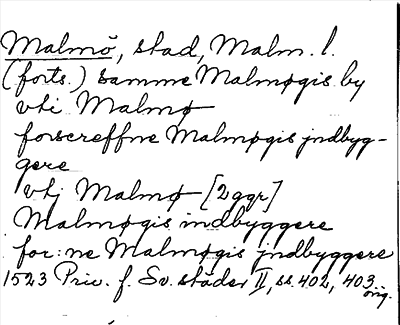 Malmö, stad, Malm. l.
(forts.) samme Malmøgis by
vti Malmø
forscreffne Malmøgis jndbyg-
gere
vtj Malmø [2ggr]
Malmøgis indbyggere
for:ne Malmøgis jndbyggere
1523 Priv. f. Sv. städer II, ss. 402, 403
orig.